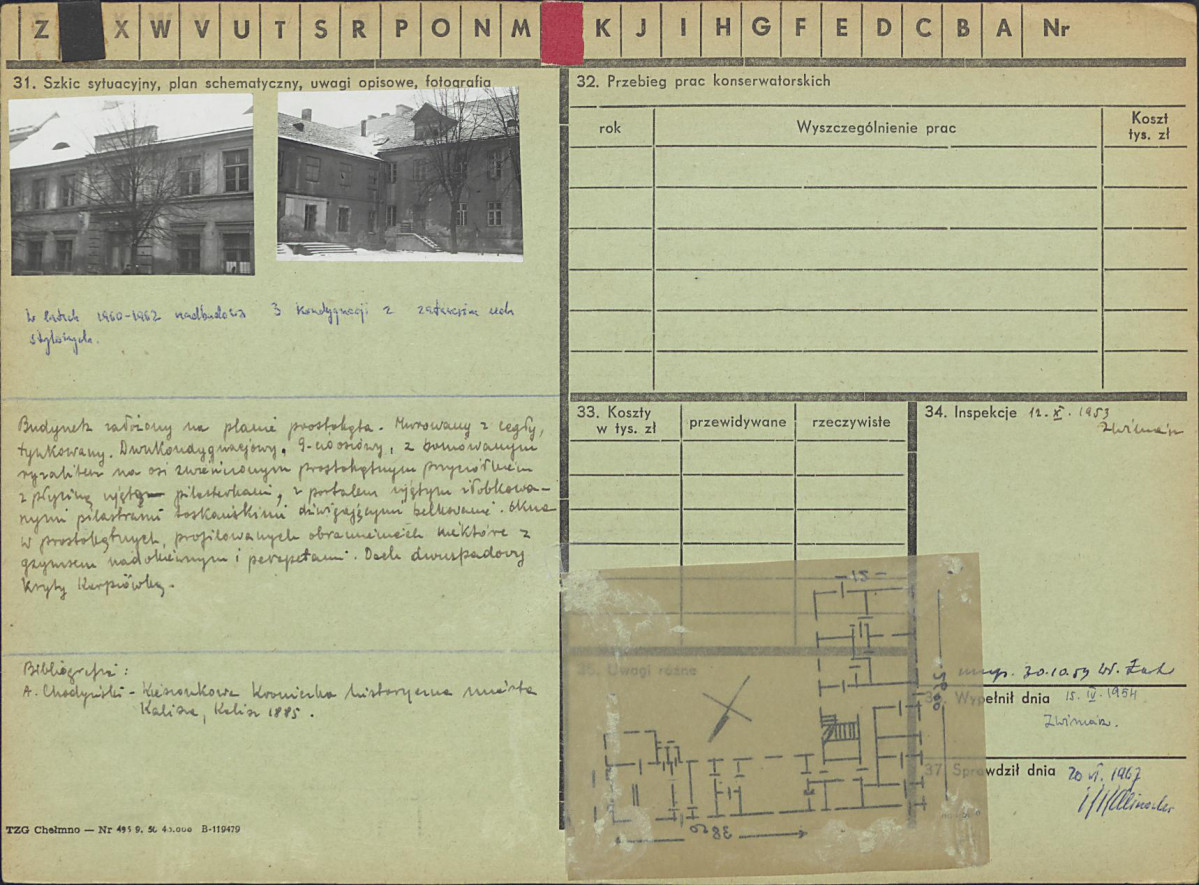 Z X W V U T S R P O N M K J I H G F E D C B A Nr
31. Szkic sytuacyjny, plan schematyczny, uwagi opisowe, fotografia
W latach 1960-1962 nadbudowa 3 kondygnacji z zatarciem cech
stylowych.
Budynek założony na planie prostokąta. Murowany z cegły,
tynkowany. Dwukondygnacjowy, 9-cioosiowy, z boniowanym
ryzalitem na osi zwieńczonym prostokątnym przyczółkiem
z płyciną ujętą pilasterkami, z portalem ujętym żłobkowa-
nymi pilastrami toskańskimi dźwigającymi belkowanie. Okna
w prostokątnych, profilowanych obramieniach niektóre z
gzymsem nadokiennym i parapetami. Dach dwuspadowy
kryty karpiówką.
Bibliografia:
A. Chodyński - Kieszonkowa Kroniczka historyczna miasta
Kalisza, Kalisz 1885.
TZG Chełmno — Nr 495 9. 56 45.000 B-119479
32. Przebieg prac konserwatorskich
rok
Wyszczególnienie prac
Koszt
tys. zł
33. Koszty
w tys. zł
przewidywane
rzeczywiste
34. Inspekcje 12. XI. 1953
35. Uwagi różne
30.10.59
Wypełnił dnia 15. IV. 1954
37. Sprawdził dnia 20 VI. 1967
12
3820